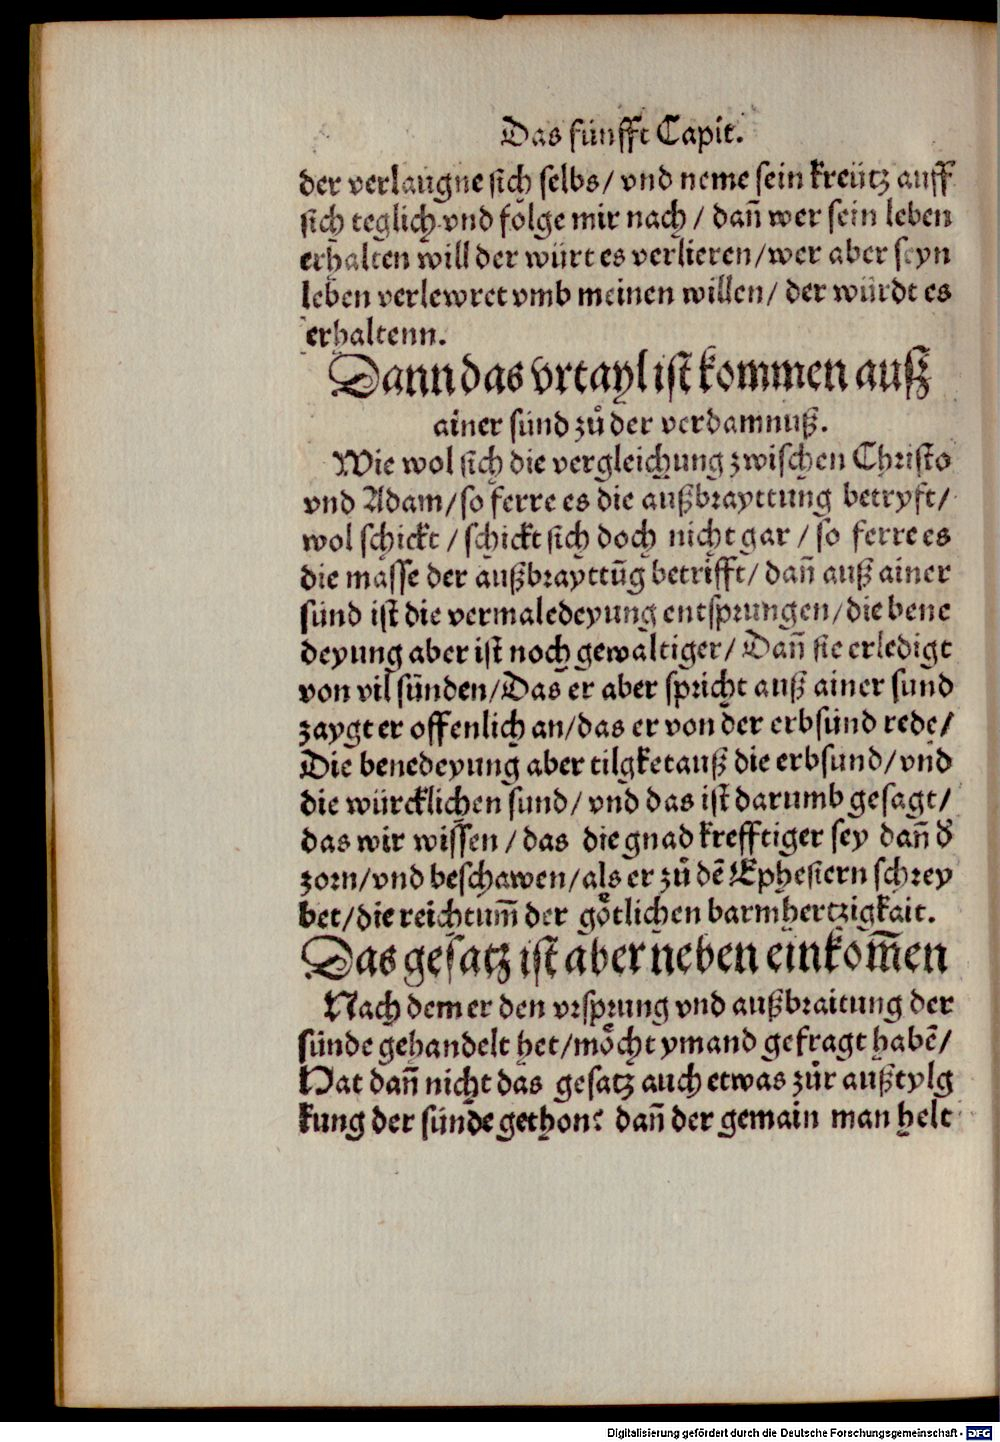 Das fünfft Capit.
der verlaugne sich selbs/ vnd neme sein kreütz auff
sich teglich vnd folge mir nach/ dañ wer sein leben
erhalten will der würt es verlieren/wer aber seyn
leben verlewret vmb meinen willen/ der würdt es
erhaltenn.
Dann das vrtayl ist kommen auß
ainer sünd zů der verdamnuß.
Wie wol sich die vergleichung zwischen Christo
vnd Adam/so ferre es die außbrayttung betryft/
wol schickt/schickt sich doch nicht gar/so ferre es
die masse der außbrayttũg betrifft/ dañ auß ainer
sünd ist die vermaledeyung entsprungen/die bene
deyung aber ist noch gewaltiger/ Dañ sie erledigt
von vil sünden/Das er aber spricht auß ainer sund
zaygt er offenlich an/das er von der erbsünd rede/
Die benedeyung aber tilgket auß die erbsund/vnd
die würcklichen sund/ vnd das ist darumb gesagt/
das wir wissen/das die gnad krefftiger sey dañ d̛
zorn/vnd beschawen/als er zů dẽ Ephesiern schrey
bet/die reichtum̃ der götlichen barmhertzigkait.
Das gesatz ist aber neben einkom̃en
Nach dem er den vrsprung vnd außbraitung der
sünde gehandelt het/möcht ymand gefragt habẽ/
Hat dañ nicht das gesatz auch etwas zůr außtylg
kung der sünde gethon? dañ der gemain man helt
Digitalisierung gefördert durch die Deutsche Forschungsgemeinschaft - DFG